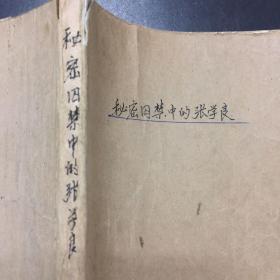 秘密囚禁中的张学良
秘密囚禁中的张学良